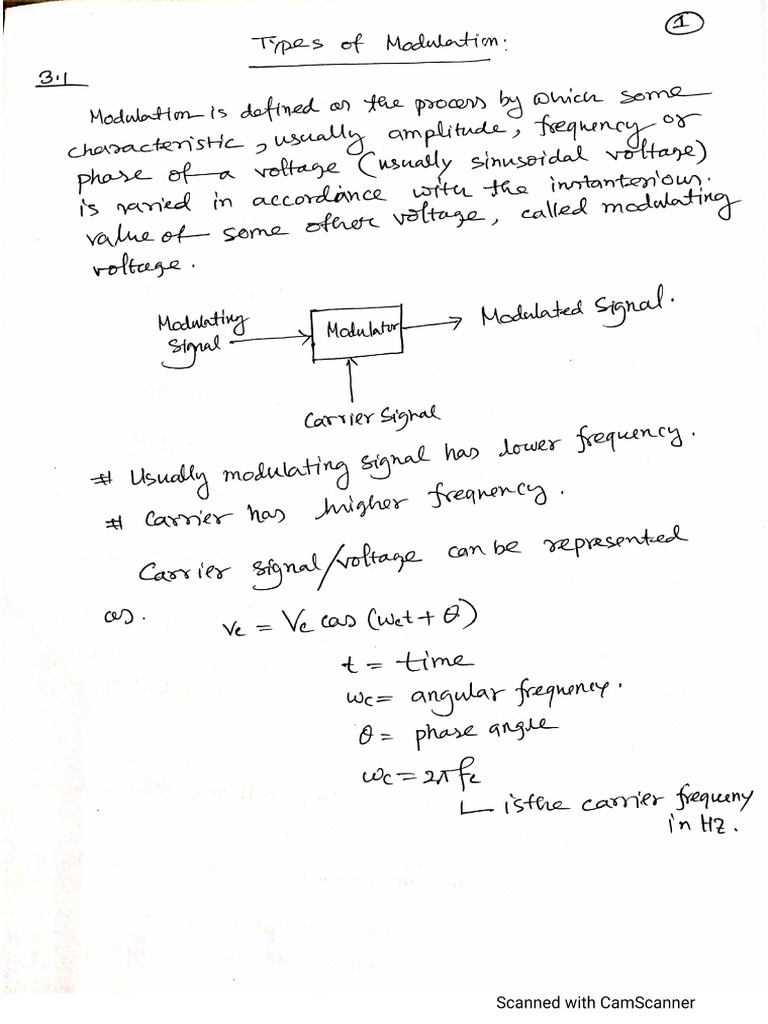 1
Types of Modulation:
3.1
Modulation is defined as the process by which some
characteristic, usually amplitude, frequency or
phase of a voltage (usually sinusoidal voltage)
is varied in accordance with the instanterious.
value of some other voltage, called modulating
voltage.
Modulating
Signal
Modulator
Modulated Signal.
Carrier Signal
# Usually modulating signal has lower frequency.
# Carrier has higher frequency.
Carrier signal/voltage can be represented
as.
Vc = Vc cos (wct + θ)
t = time
wc = angular frequency.
θ = phase angle
wc = 2π fc
is the carrier frequeny
in HZ.
Scanned with CamScanner